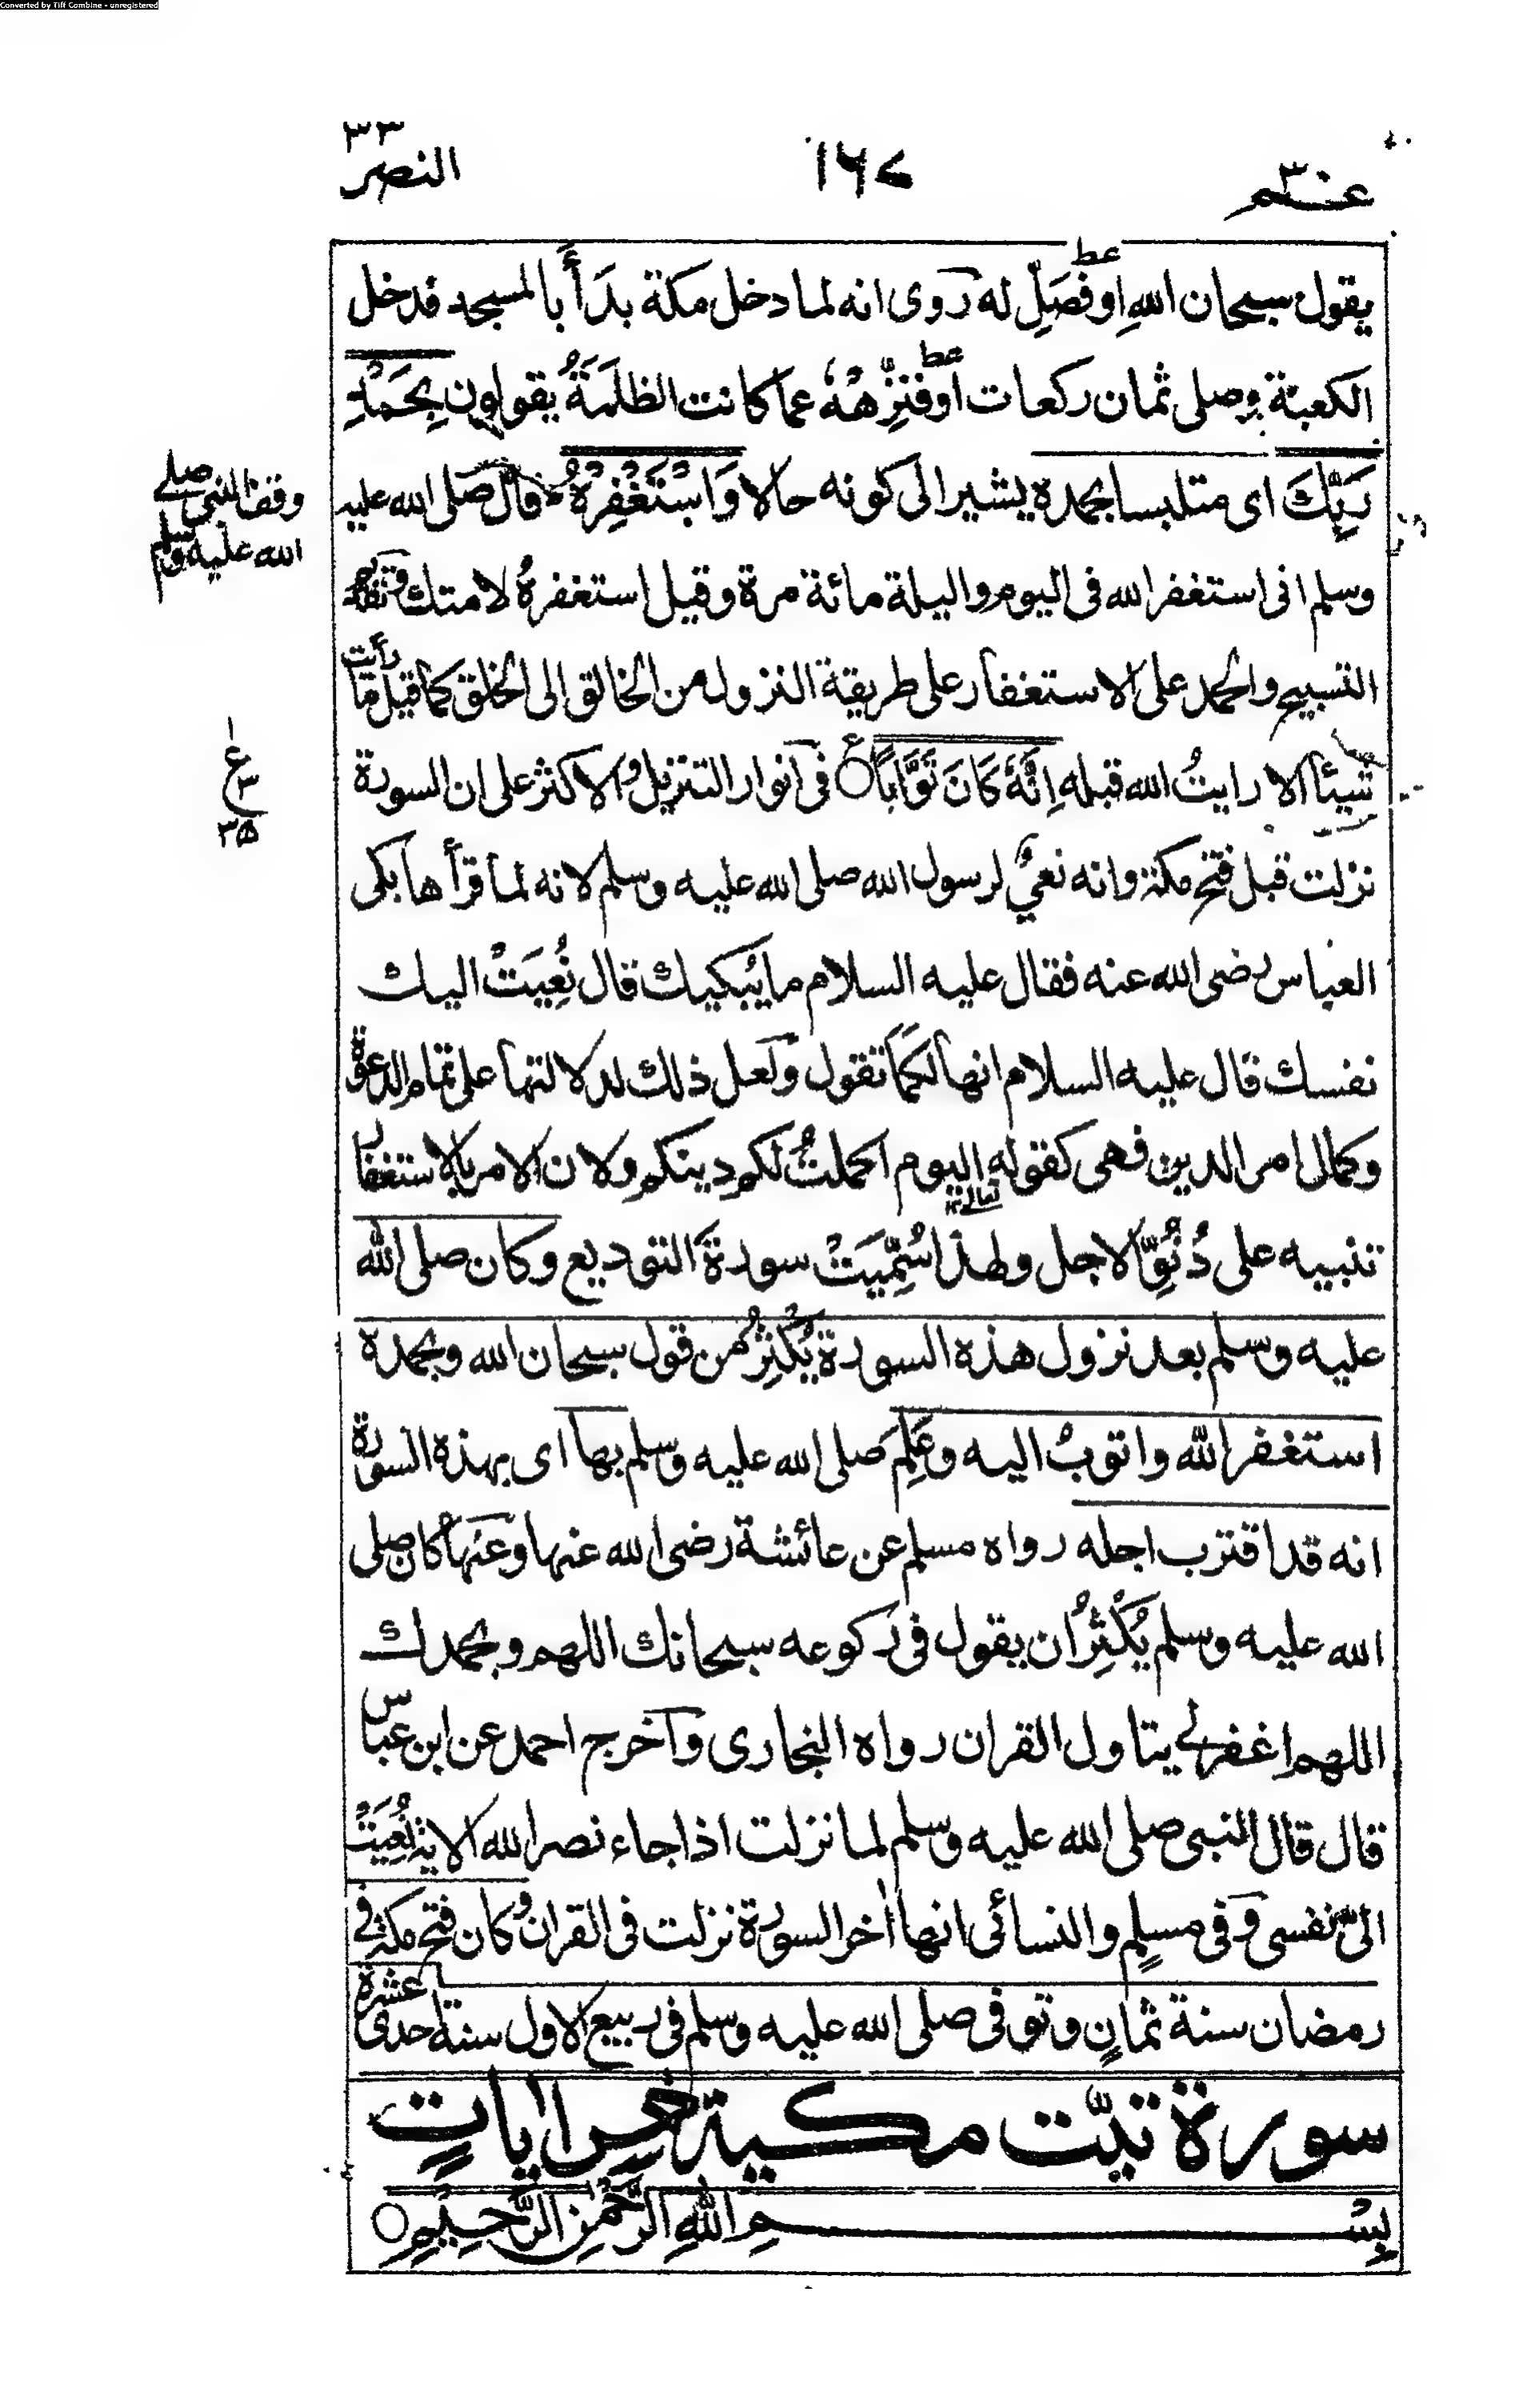 Converted by Tiff Combine - unregistered
عـم ٣٠
١٦٧
النصر
٣٣
يقول سبحان اللهِ او فصَلِّ له روى انه لما دخل مكة بدَأَ بالمسجد فدخل
عط
الكعبة وصلى ثمان ركعات او فنزِّههُ عما كانت الظلمَةُ يقولون بِحَمْدِ
عط
رَبِّكَ اى متلبسا بحمدہ يشير الى كونه حالا وَاسْتَغْفِرْهُ قال صلى الله عليه
وقف النبى صلے
الله عليه وسلم
وسلم انى استغفر الله فى اليوم والليلة مائة مرة وقيل استغفرهُ لامتك
التسبيح والحمد على الاستغفار على طريقة النزول من الخالق الى الخلق كما قيل ما رأيت
شيئاً الا رايتُ الله قبله اِنَّهٗ كَانَ تَوَّابًا فى انوار التنزيل والاكثر على ان السورة
ع
٣
٣٥
نزلت قبل فتح مكة وانه نعىٌ لرسول الله صلى الله عليه وسلم لانه لما قرأها بكى
العباس رضى الله عنه فقال عليه السلام ما يُبكيك قال نُعِيَتْ اليك
نفسك قال عليه السلام انها لكما تقول ولعل ذلك لدلالتها على تمام الدعوة
وكمال امر الدين فهى كقوله اليوم اكملتُ لكم دينكم ولان الامر بالاستغفار
تعالے
تنبيه على دُنُوِّ الاجل ولهذا سُمِّيَتْ سورةَ التوديع وكان صلى الله
عليه وسلم بعد نزول هذه السورة يُكثِرُ من قول سبحان الله وبحمدہ
استغفر الله واتوبُ اليه وعَلِمَ صلى الله عليه وسلم بها اى بهذه السورة
انه قد اقترب اجله رواه مسلم عن عائشة رضى الله عنها وعنها كان صلى
الله عليه وسلم يُكْثِرُ ان يقول فى ركوعه سبحانك اللهم وبحمدك
اللهم اغفرلے يتاول القران رواه البخارى واخرج احمد عن ابن عباس
قال قال النبى صلى الله عليه وسلم لما نزلت اذا جاء نصر الله الاية نُعِيَتْ
الىّ نفسى وفى مسلم والنسائى انها اٰخر السورة نزلت فى القران وكان فتح مكة فى
رمضان سنة ثمانٍ وتوفى صلى الله عليه وسلم فى ربيع الاول سنة احدى عشرة
سورة تبّت مكية خمس اٰياتٍ
بِسْمِ اللهِ الرَّحْمٰنِ الرَّحِيْمِ